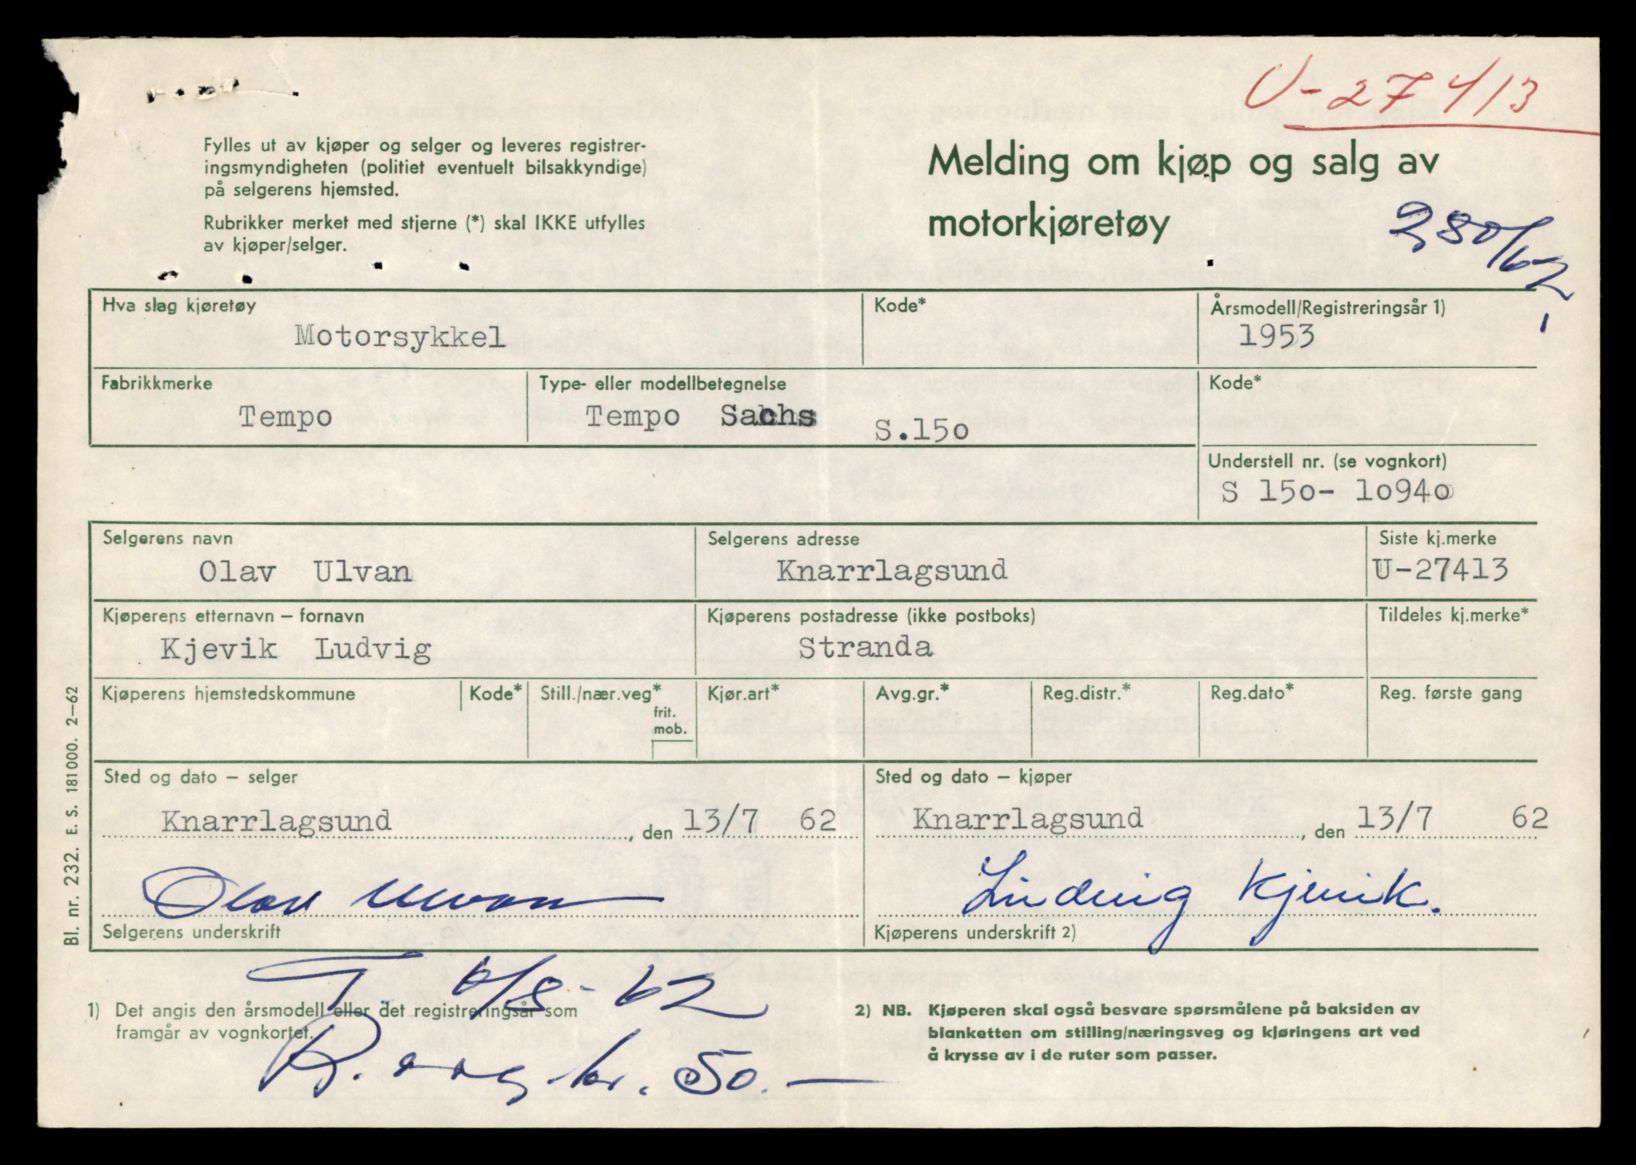 U-27413
Fylles ut av kjøper og selger og leveres registrer-
ingsmyndigheten (politiet eventuelt bilsakkyndige)
på selgerens hjemsted.
Rubrikker merket med stjerne (*) skal IKKE utfylles
av kjøper/selger.
Melding om kjøp og salg av
motorkjøretøy
280/62
Hva slag kjøretøy
Kode*
Årsmodell/Registreringsår 1)
Motorsykkel
1953
Fabrikkmerke
Type- eller modellbetegnelse
Kode*
Tempo
Tempo Sachs S.150
Understell nr. (se vognkort)
S 150- 10940
Selgerens navn
Selgerens adresse
Siste kj.merke
Olav Ulvan
Knarrlagsund
U-27413
Kjøperens etternavn – fornavn
Kjøperens postadresse (ikke postboks)
Tildeles kj.merke*
Kjevik Ludvig
Stranda
Kjøperens hjemstedskommune
Kode*
Still./nær.veg*
frit.
mob.
Kjør.art*
Avg.gr.*
Reg.distr.*
Reg.dato*
Reg. første gang
Sted og dato – selger
Sted og dato – kjøper
Knarrlagsund, den 13/7 62
Knarrlagsund, den 13/7 62
Olav Ulvan
Ludvig Kjevik.
Selgerens underskrift
Kjøperens underskrift 2)
Bl. nr. 232. E. S. 181000. 2–62
T. 6/8-62
1) Det angis den årsmodell eller det registreringsår som
framgår av vognkortet.
kr. 50.-
2) NB. Kjøperen skal også besvare spørsmålene på baksiden av
blanketten om stilling/næringsveg og kjøringens art ved
å krysse av i de ruter som passer.